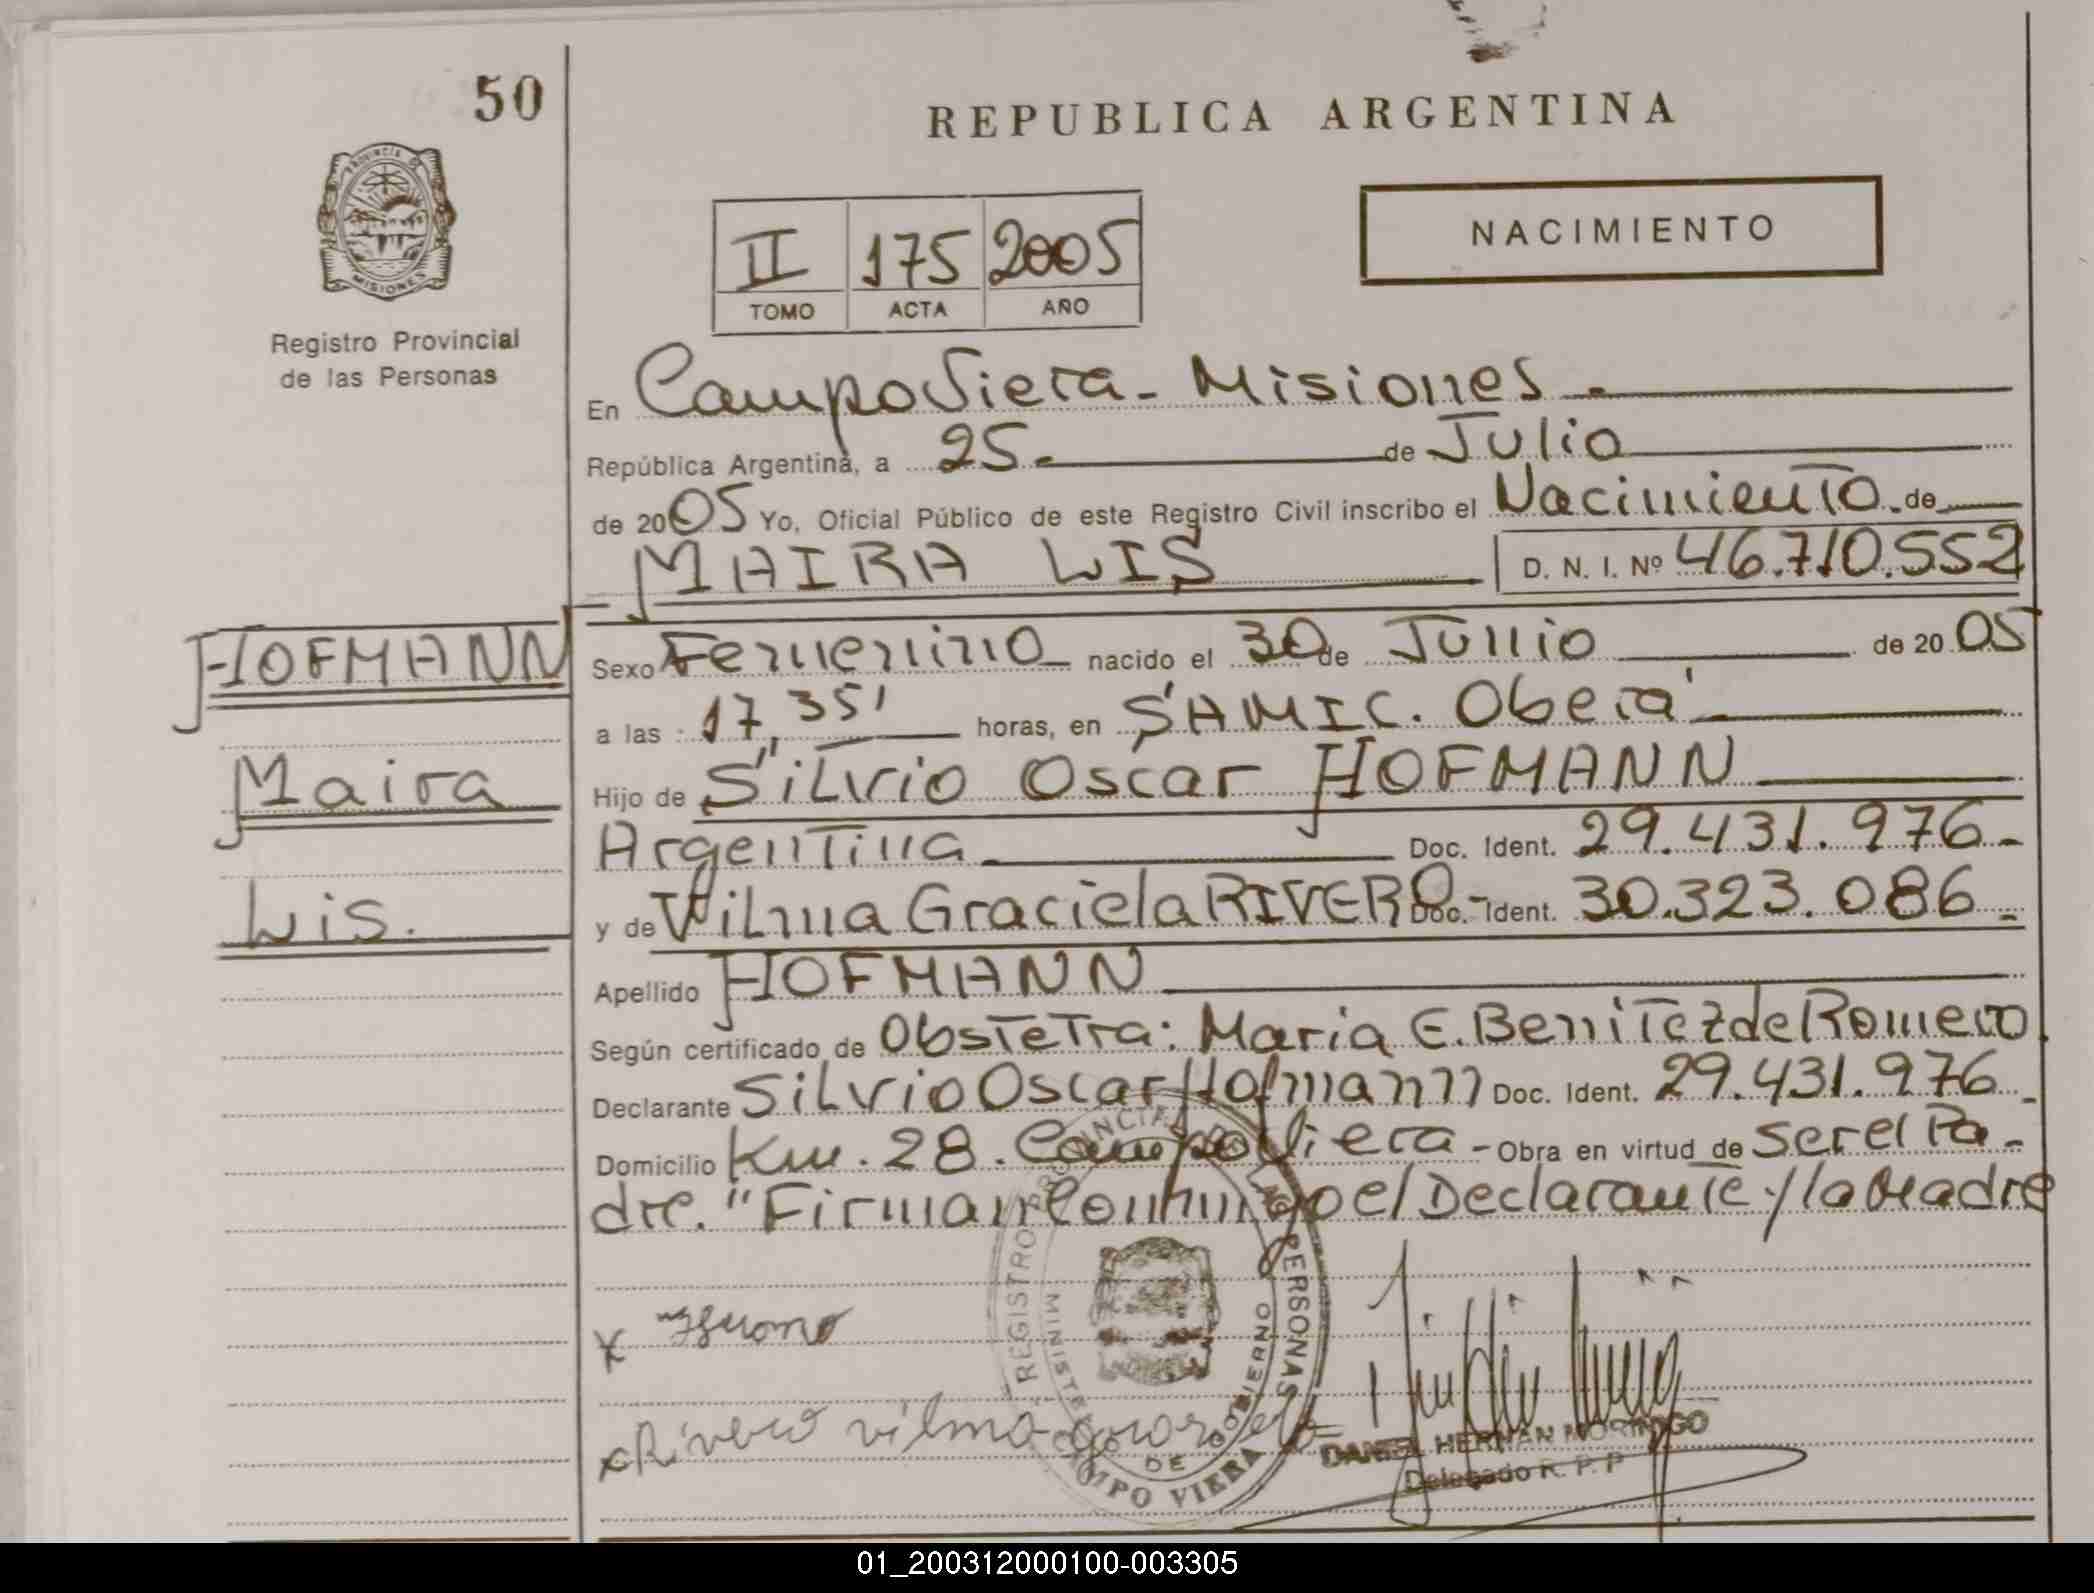 50
REPUBLICA ARGENTINA
PROVINCIA DE
MISIONES
Registro Provincial
de las Personas
NACIMIENTO
II 175 2005
TOMO ACTA AÑO
En Campo Viera - Misiones.
República Argentina, a 25. de Julio
de 2005 Yo, Oficial Público de este Registro Civil inscribo el Nacimiento. de
MAIRA LIS D. N. I. Nº 46.710.552
HOFMANN
Maira
Lis.
Sexo Femenino nacido el 30 de Junio de 2005
a las 17,35' horas, en SAMIC. Oberá
Hijo de Silvio Oscar HOFMANN
Argentina Doc. Ident. 29.431.976-
y de Vilma Graciela RIVERO- Doc. Ident. 30.323.086.
Apellido HOFMANN
Según certificado de Obstetra: Maria E. Benitez de Romero.
Declarante Silvio Oscar Hofmann Doc. Ident. 29.431.976
Domicilio Km. 28. Campo Viera - Obra en virtud de ser el Pa-
dre. "Firman Conmigo el Declarante y la Madre
REGISTRO PROVINCIAL DE LAS PERSONAS
DE GOBIERNO
CAMPO VIERA
x
x Rivero vilma
DANIEL HERNAN MORINIGO
Delegado R. P. P
01_200312000100-003305